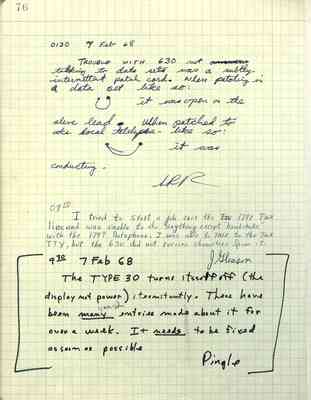 76
0130 7 Feb 68
Trouble with 630 not
talking to data sets was a subtly
intermittent patch cord. When patching in
a data set like so:
it was open on the
slave lead. When patched to
a local teletype - like so:
it was
conducting.
I tried to start a job sent the 1292 Task
House and was unable to do anything except handshake
with the 179T Dataphone. I was able to talk to the Task
TTY, but the 630 did not receive characters from it.
J Gleason
7 Feb 68
The TYPE 30 turns itself off (the
display not power) itermitantly. There have
been many entries made about it for
over a week. It needs to be fixed
as soon as possible
Pingle